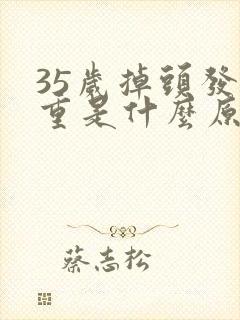 35歲掉頭發
重是什麼原
蔡志松